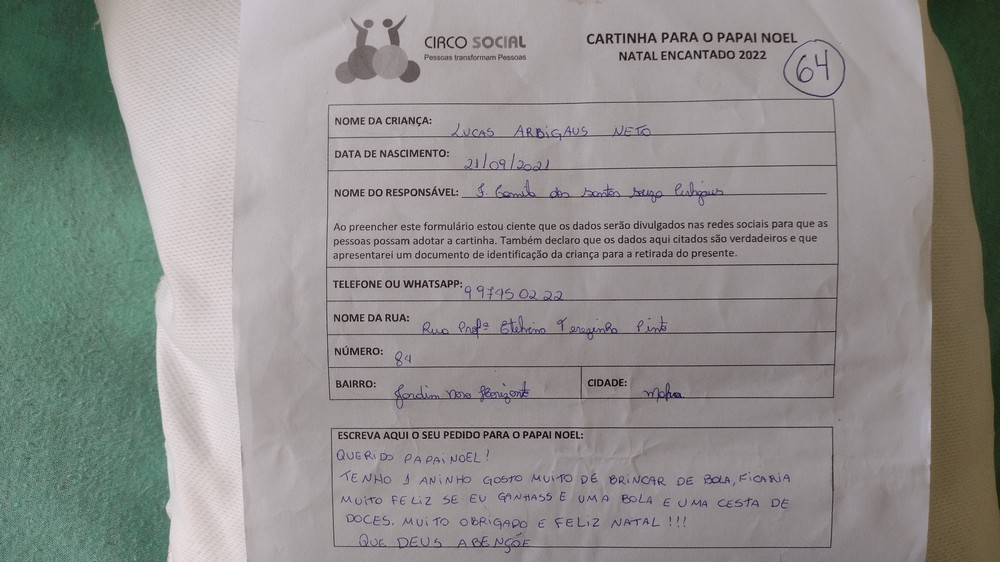 CIRCO SOCIAL
Pessoas transformam Pessoas
CARTINHA PARA O PAPAI NOEL
NATAL ENCANTADO 2022
64
NOME DA CRIANÇA: LUCAS ARBIGAUS NETO
DATA DE NASCIMENTO: 21/09/2021
NOME DO RESPONSÁVEL: dos santos
Ao preencher este formulário estou ciente que os dados serão divulgados nas redes sociais para que as
pessoas possam adotar a cartinha. Também declaro que os dados aqui citados são verdadeiros e que
apresentarei um documento de identificação da criança para a retirada do presente.
TELEFONE OU WHATSAPP: 997450222
NOME DA RUA: Rua Profª Terezinha Pinto
NÚMERO: 84
BAIRRO: Jardim Novo Horizonte CIDADE: Mafra
ESCREVA AQUI O SEU PEDIDO PARA O PAPAI NOEL:
QUERIDO PAPAI NOEL!
TENHO 1 ANINHO GOSTO MUITO DE BRINCAR DE BOLA, FICARIA
MUITO FELIZ SE EU GANHASSE UMA BOLA E UMA CESTA DE
DOCES. MUITO OBRIGADO E FELIZ NATAL!!!
QUE DEUS ABENÇÕE